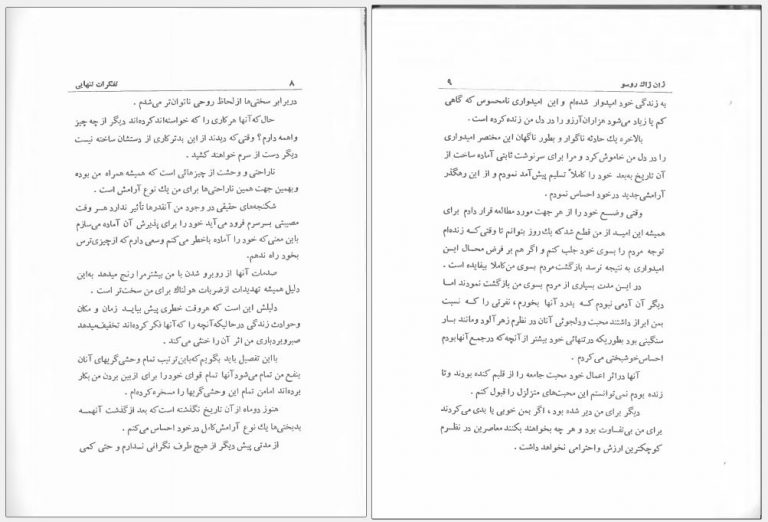 ۸ تفکرات تنهایی
دربرابر سختی‌ها از لحاظ روحی ناتوان‌تر می‌شدم .
حال‌که آنها هرکاری را که خواسته‌اند کرده‌اند دیگر از چه چیز
واهمه دارم؟ وقتی‌که دیدند از این بدترکاری از دستشان ساخته نیست
دیگر دست از سرم خواهند کشید .
ناراحتی و وحشت از چیزهائی است که همیشه همراه من بوده
وبهمین جهت همین ناراحتی‌ها برای من یك نوع آرامش است .
شکنجه‌های حقیقی در وجود من آنقدرها تأثیر ندارد هـر وقت
مصیبتی بسرم فرود می‌آید خود را برای پذیرش آن آماده می‌سازم
باین معنی‌که خود را آماده باخطر می‌کنم وسعی دارم که ازچیزی‌ترس
بخود راه ندهم.
صدمات آنها از روبرو شدن با من بیشترمرا رنج میدهد به‌این
دلیل همیشه تهدیدات ازضربات هولناك برای من سخت‌تر است .
دلیلش این است که هروقت خطری پیش بیاید زمان و مکان
وحوادث زندگی درحالیکه‌آنچه را که‌آنها فکر کرده‌اند تخفیف‌میدهد
صبروبردباری من اثر آن را خنثی می‌کند .
بااین تفصیل باید بگویم‌که باین‌ترتیب تمام وحشی‌گریهای آنان
بنفع من تمام می‌شودآنها تمام قوای خود را برای ازبین بردن من بکار
برده‌اند امامن تمام این وحشی‌گریها را مسخره کرده‌ام .
هنوز دوماه از آن تاریخ نگذشته است‌که بعد ازگذشت آنهمـه
بدبختی‌ها یك نوع آرامش‌کامل درخود احساس می‌کنم .
از مدتی پیش دیگر از هیچ طرف نگرانی نـدارم و حتی کمی
ژان ژاك روسو ۹
به زندگی خود امیدوار شده‌ام و این امیدواری نامحسوس که گاهی
کم یا زیاد می‌شود هزاران‌آرزو را در دل من زنده کرده است .
بالاخره یك حادثه ناگوار و بطور ناگهان این مختصر امیدواری
را در دل من خاموش‌کرد و مرا برای سرنوشت ثابتی آماده ساخت از
آن تاریخ به‌بعد خود را کاملاً تسلیم پیش‌آمد نمودم و از این رهگذر
آرامشی‌جدید درخود احساس نمودم .
وقتی وضـع خود را از هر جهت مورد مطالعه قرار دادم برای
همیشه این امیـد از من قطع شدکه یك روز بتوانم تا وقتی‌کـه زنده‌ام
توجه مردم را بسوی خود جلب کنم و اگر هم بر فرض محـال ایـن
امیدواری به نتیجه نرسد بازگشت‌مردم بسوی من‌کاملا بیفایده است .
در این مدت بسیاری از مردم بسوی من بازگشت نمودند امـا
دیگر آن آدمی نبودم کـه بدرد آنها بخورم ، نفرتی را کـه نسبت
بمن ابراز داشتند محبت ودلجوئی آنان در نظرم زهرآلود ومانند بـار
سنگینی بود بطوریکه درتنهائی خود بیشتر ازآنچه‌که درجمع‌آنهابودم
احساس‌خوشبختی می‌کردم .
آنها دراثر اعمال خود محبت جامعه را از قلبم کنده بودند وتا
زنده بودم نمی‌توانستم این محبت‌های متزلزل را قبول کنم .
دیگر برای من دیر شده بود ، اگر بمن خوبی یا بدی می‌کردند
برای من بی‌تفاوت بود و هر چه بخواهند بکنند معاصرین در نظـرم
کوچکترین ارزش واحترامی نخواهد داشت .